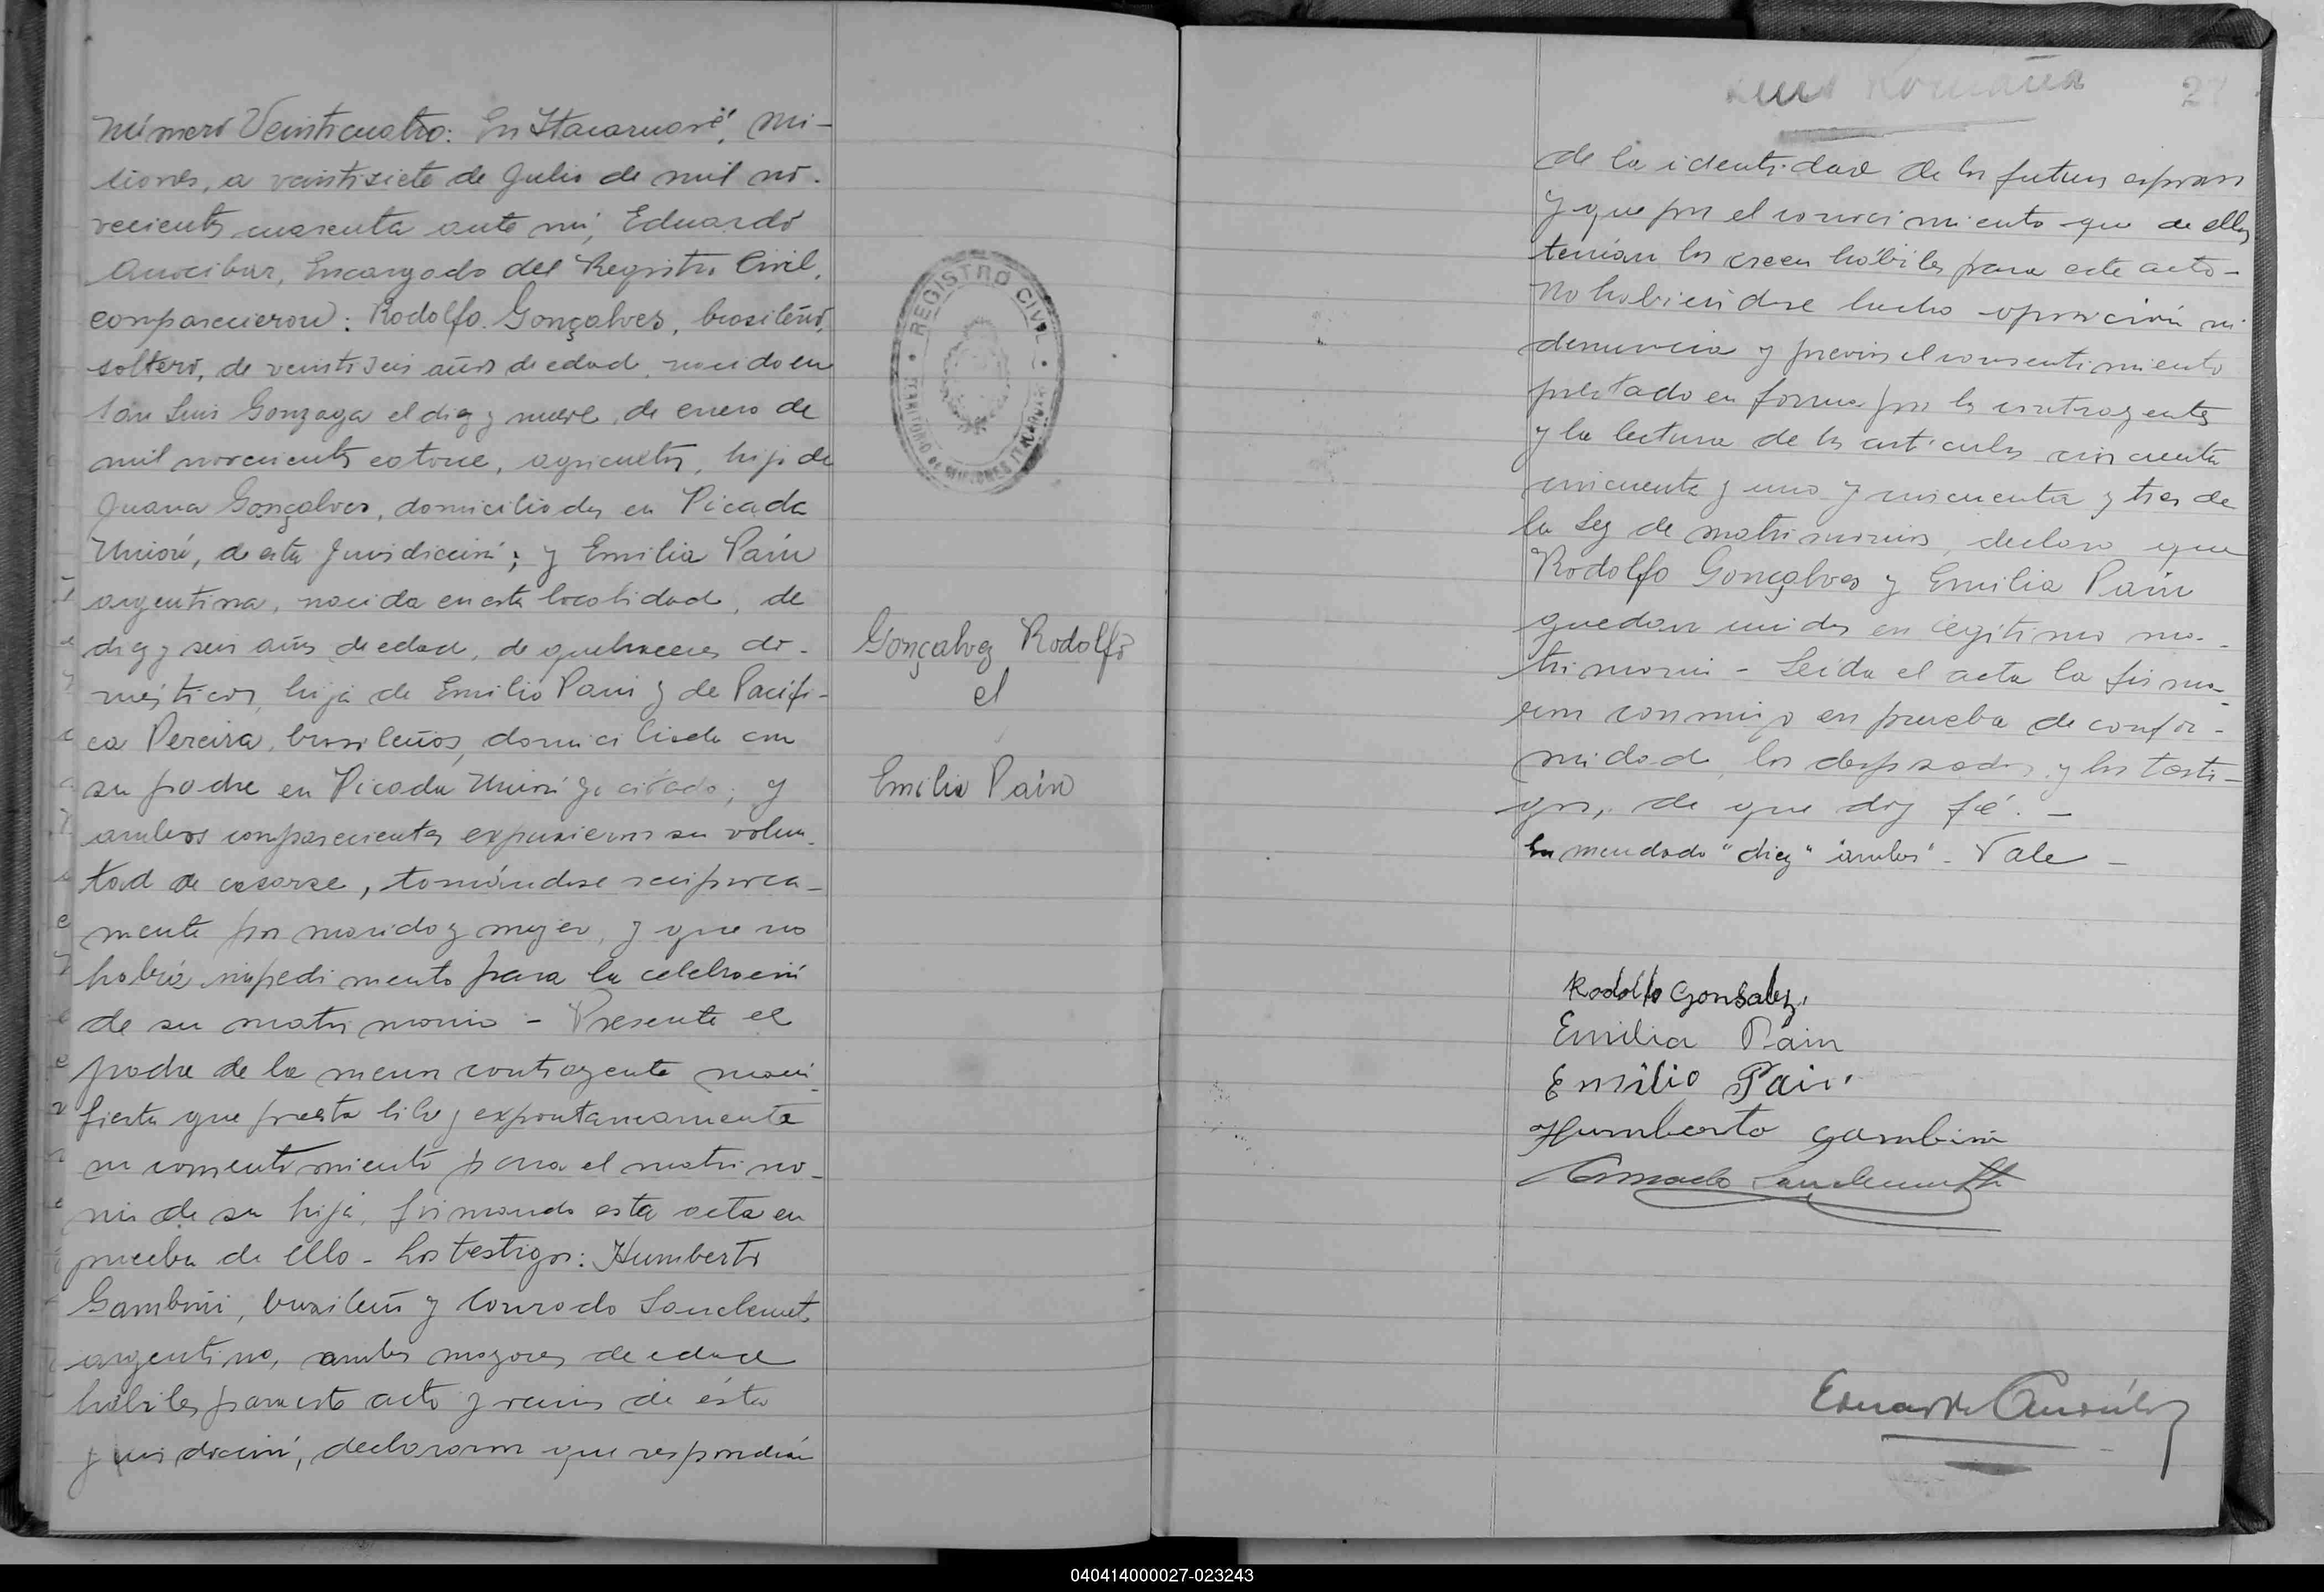 Número Veinticuatro: En Itacaruaré, Mi-
siones, a veintisiete de Julio de mil no-
vecientos cuarenta ante mí, Eduardo
Anocibar, Encargado del Registro Civil,
comparecieron: Rodolfo Gonçalves, brasileño,
soltero, de veintiseis años de edad, nacido en
San Luis Gonzaga el diez y nueve de enero de
mil novecientos catorce, agricultor, hijo de
Juana Gonçalves, domiciliados en Picada
Unión, de esta Jurisdicción; y Emilia Pain
argentina, nacida en esta localidad, de
diez y seis años de edad, de quehaceres do-
mésticos, hija de Emilio Pain y de Pacifi-
ca Pereira, brasileños, domiciliada con
su padre en Picada Unión ya citado; y
ambos comparecientes expusieron su volun-
tad de casarse, tomándose reciproca-
mente por marido y mujer, y que no
había impedimento para la celebración
de su matrimonio - Presente el
padre de la menor contrayente mani-
fiesta que presta libre y expontaneamente
su consentimiento para el matrimo-
nio de su hija, firmando esta acta en
prueba de ello - Los testigos: Humberto
Gambini, brasileño y Conrado Sanclement
argentino, ambos mayores de edad
hábiles para este acto y vecinos de ésta
jurisdicción, declararon que respondían
REGISTRO CIVIL
TERRITORIO DE MISIONES ITACARUARÉ
Gonçalvez Rodolfo
el
Emilia Pain
Luis Romaña
27
de la identidad de los futuros esposos
y que por el conocimiento que de ellos
tenían los creen hábiles para este acto -
No habiéndose hecho oposición ni
denuncia y previo el consentimiento
prestado en forma por los contrayentes
y la lectura de los artículos cincuenta
cincuenta y uno y cincuenta y tres de
la Ley de matrimonios, declaro que
Rodolfo Gonçalves y Emilia Pain
quedan unidos en legítimo ma-
trimonio - Leída el acta la firma-
ron conmigo en prueba de confor-
midad, los desposados y los testi-
gos, de que doy fé. -
Enmendado "diez" "ambos" - Vale -
Rodolfo Gonsalez.
Emilia Pain
Emilio Pain
Humberto Gambini
Conrado Sanclement
Eduardo Anocibar
040414000027-023243